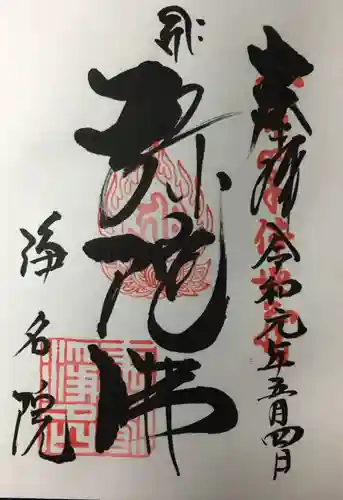 奉拝
令和元年五月四日
弥陀佛
浄名院